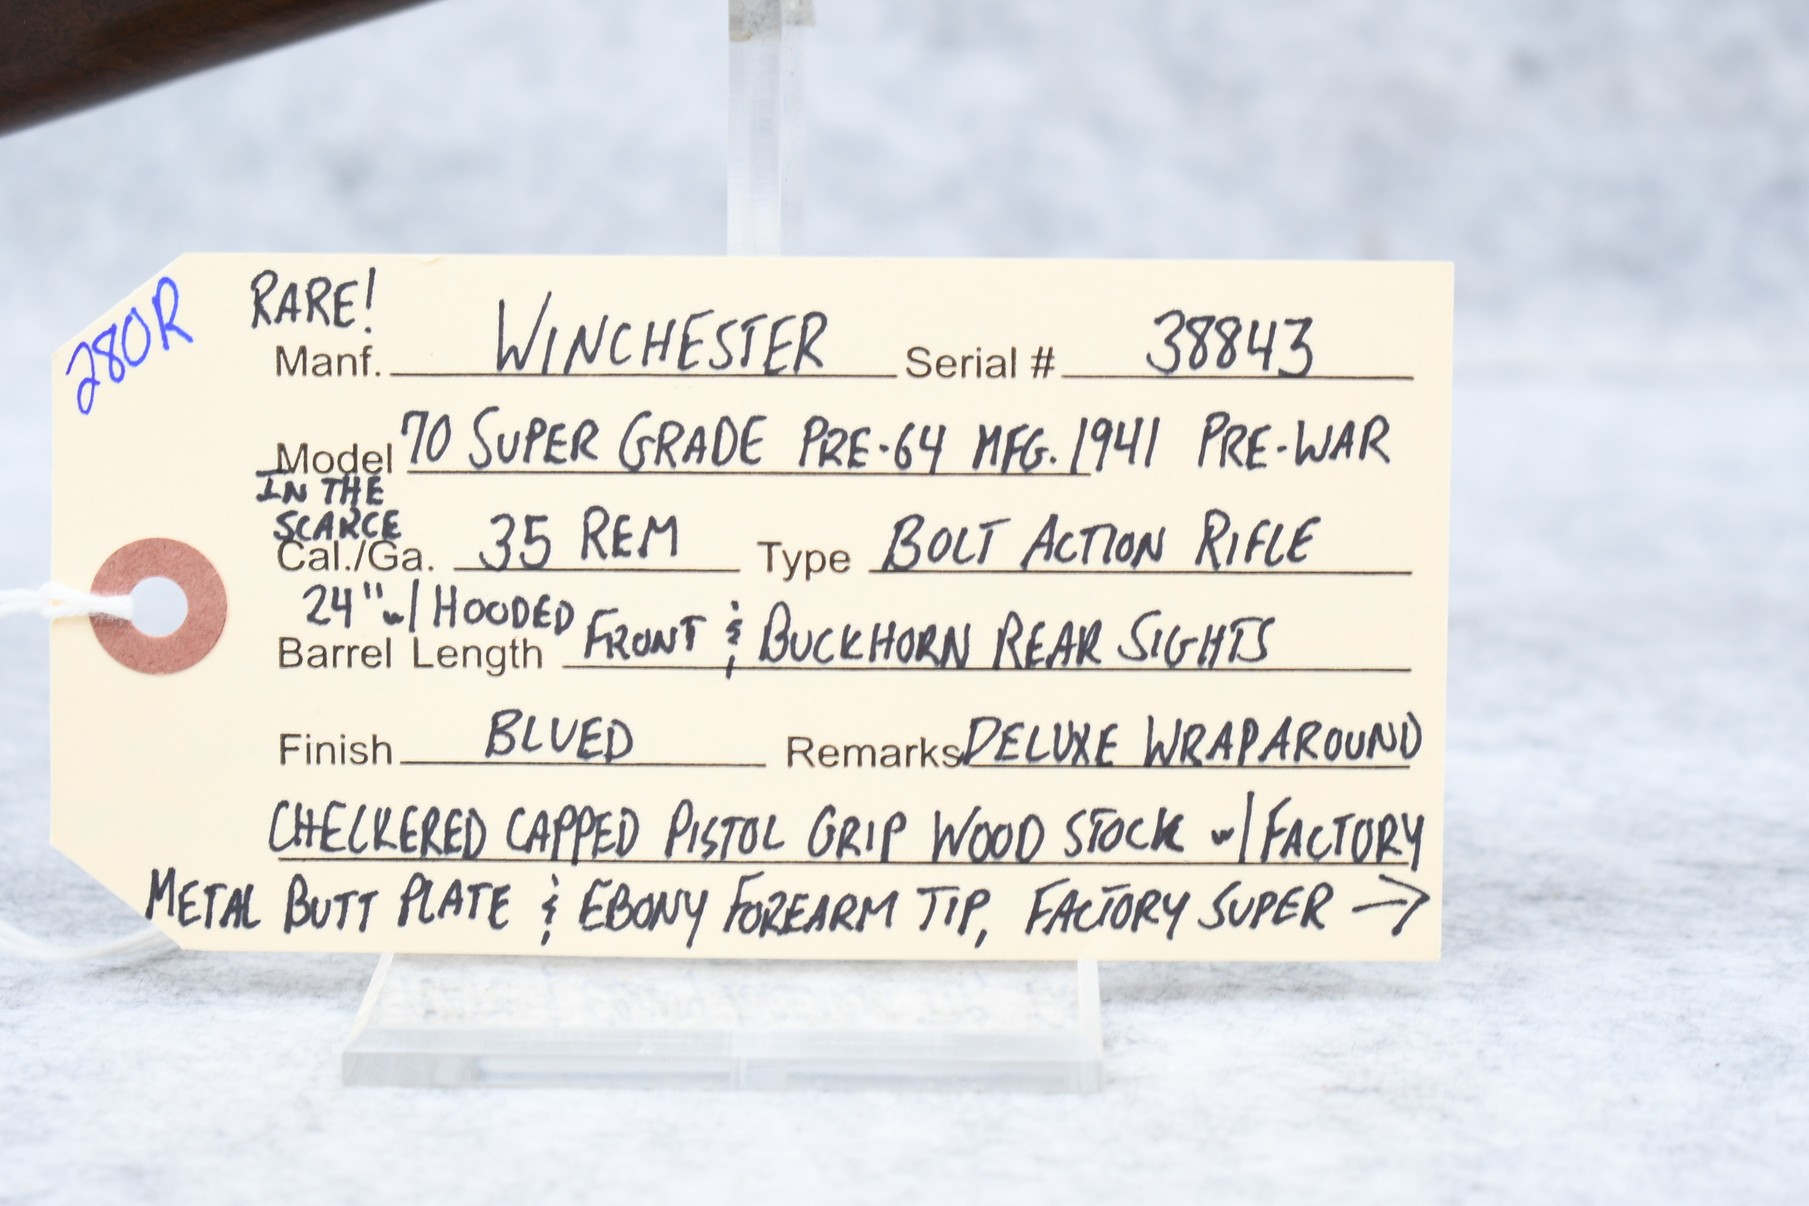 280R
RARE!
Manf. WINCHESTER Serial # 38843
Model 70 SUPER GRADE PRE-64 MFG. 1941 PRE-WAR
IN THE
SCARCE
Cal./Ga. 35 REM Type BOLT ACTION RIFLE
24" w/ HOODED
Barrel Length FRONT & BUCKHORN REAR SIGHTS
Finish BLUED Remarks DELUXE WRAPAROUND
CHECKERED CAPPED PISTOL GRIP WOOD STOCK w/ FACTORY
METAL BUTT PLATE & EBONY FOREARM TIP, FACTORY SUPER →